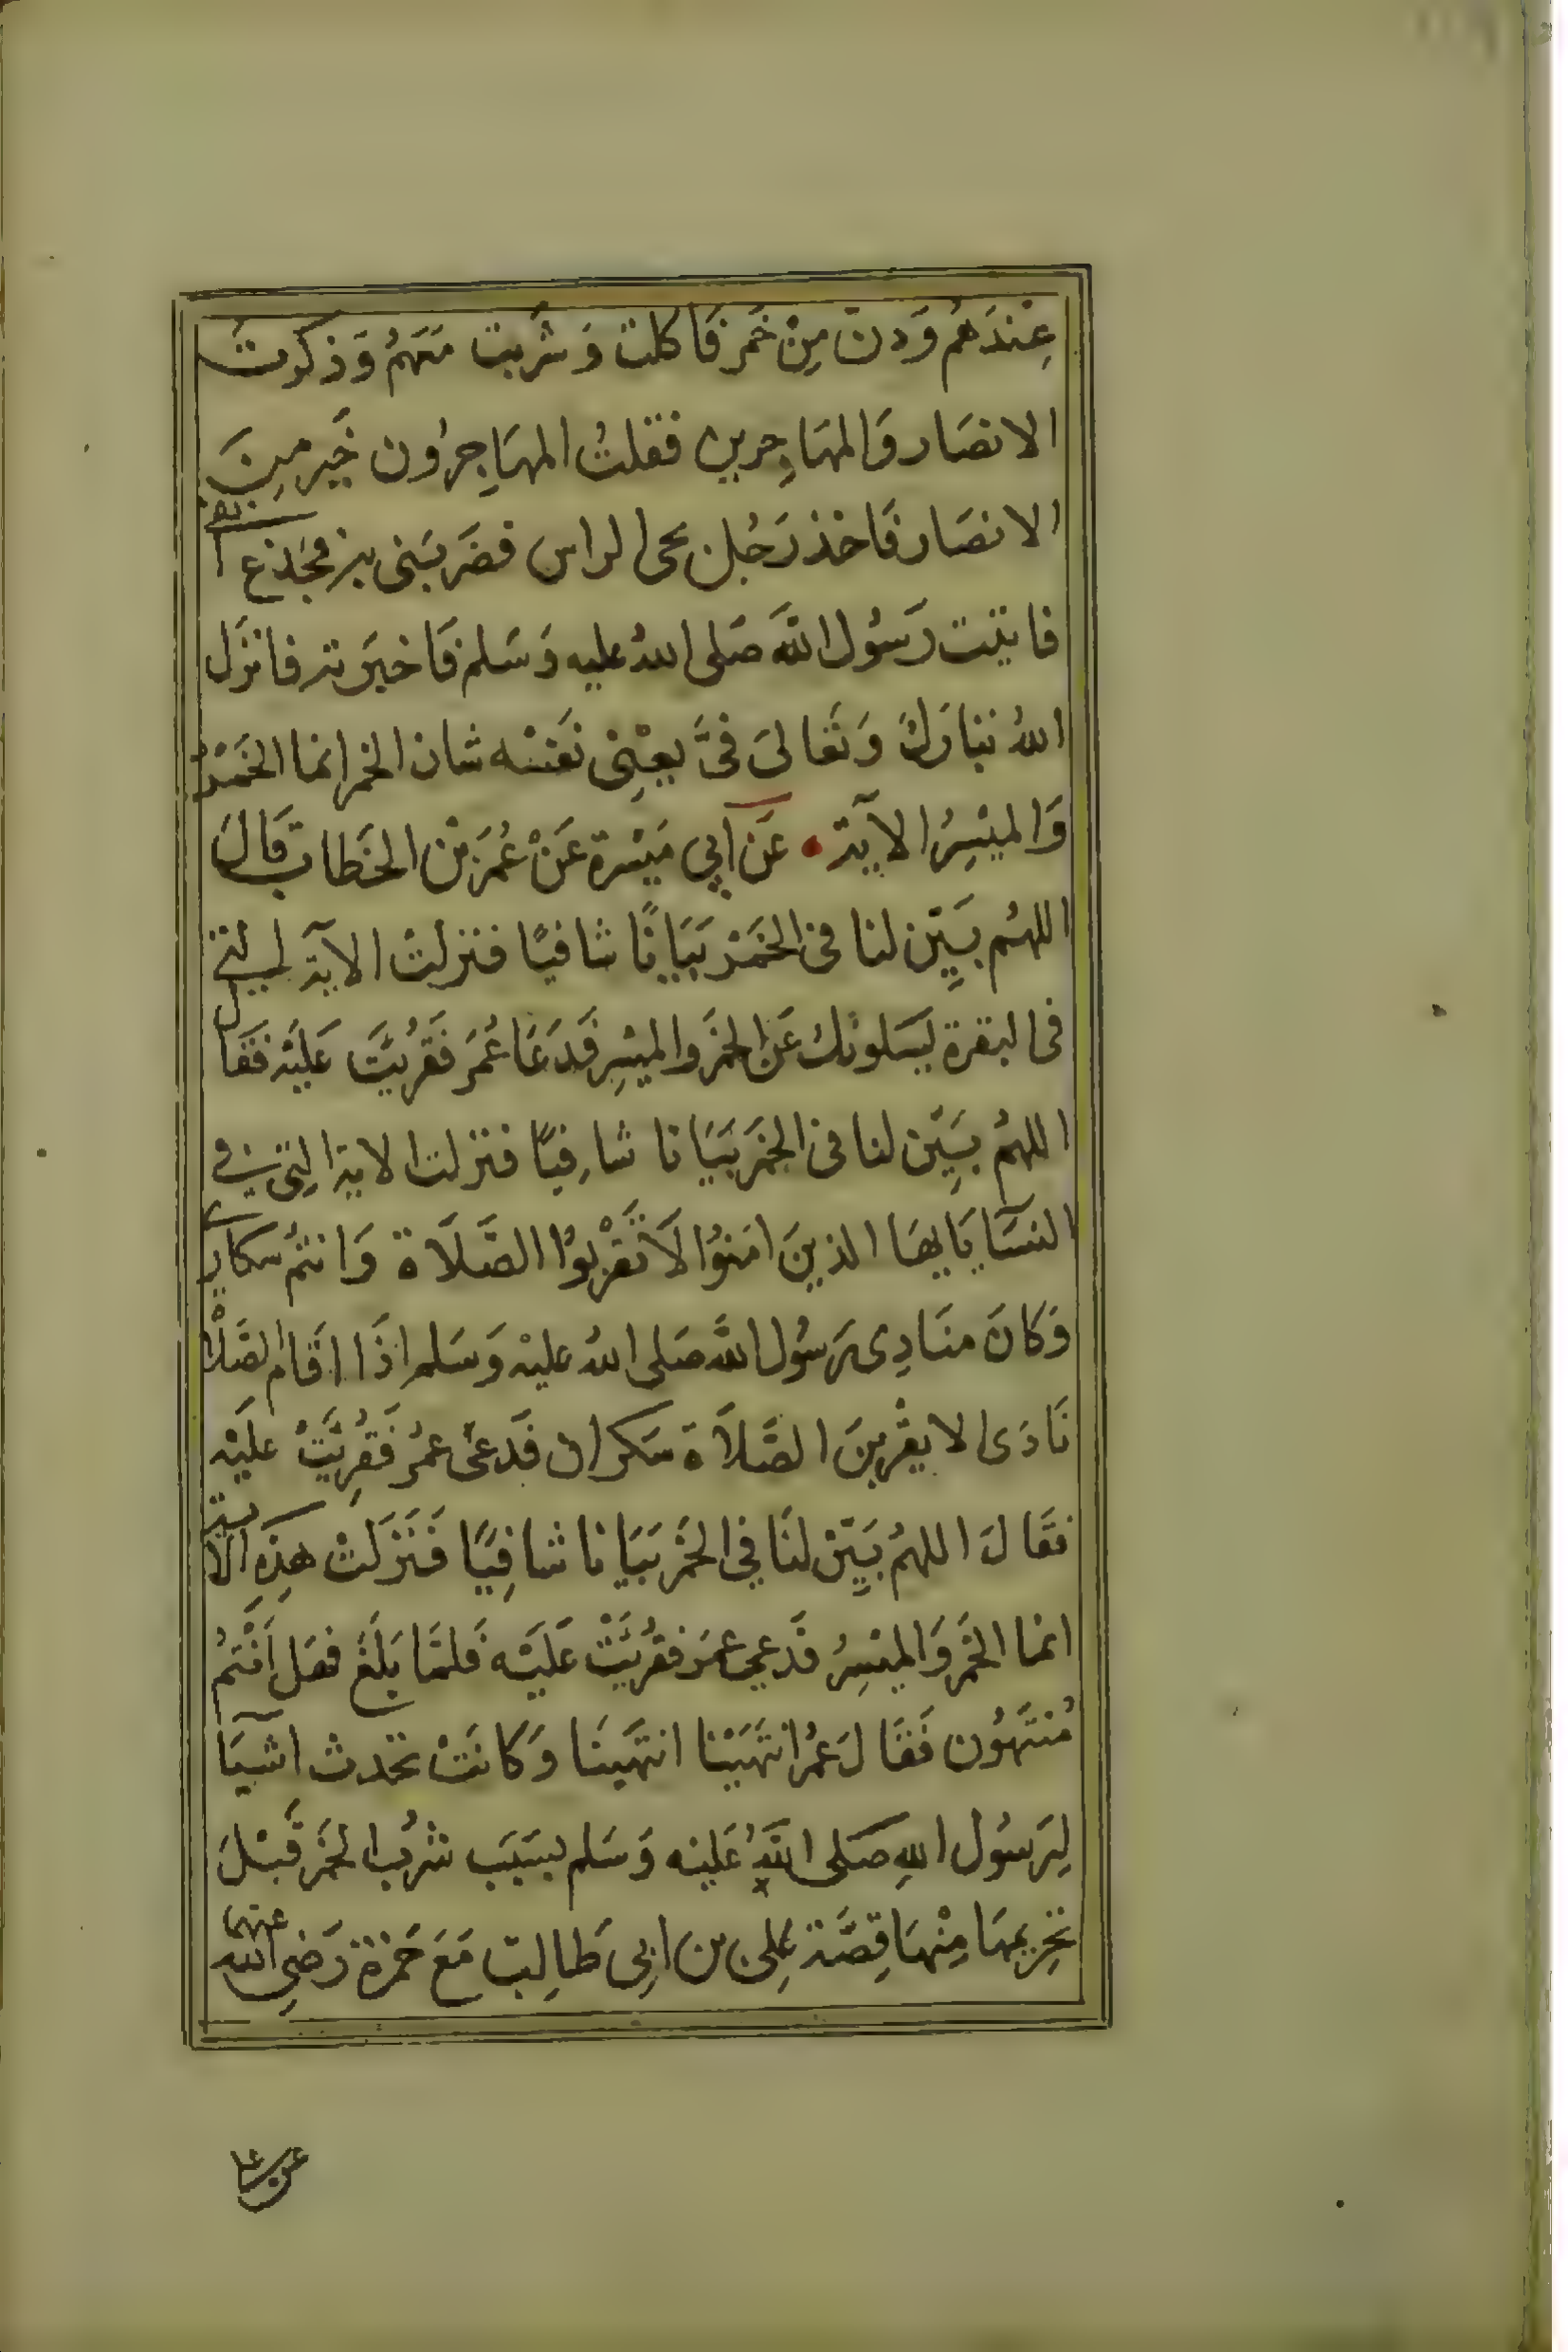 عِنْدَهُم وَدن مِنْ خَمر فَاكلت وَشَربت مَعَهُمُ وَذكرت
الانصَار وَالمهَاجرين فقلتُ المهَاجِرُون خَير مِنَ
الانصَار فَاخذ رَجُل لحى الراس فضَربَنى به فجَذع انفى
فاتيت رَسُول اللَّه صَلى اللهُ عليه وَسَلم فَاخبَرته فانزَل
اللهُ تبَارَكَ وَتَعَالىَ فىَّ يعِنْى نَفسْه شان الخمر انما الخَمْرُ
وَالميْسِرُ الآية • عَن اَبِى مَيْسَرة عَنْ عُمَر بْن الخَطاب قَالَ
اللهُم بَيّن لنا فى الخَمْر بَيَانًا شافيًا فنزلتْ الآية التى
فى البقرة يَسَلونكَ عَن الخَمَر والميْسِر فَدَعَا عُمَر فَقُرئَتَ عَليْه فقَال
اللهُم بَيّن لنا فى الخَمَر بَيَانا شافِيًا فنزلت الاية التِى فى
النسَا يَايهَا الذينَ امَنوُا لاَ تَقْرَبوُا الصَّلاَة وَانتمُ سكارى
وَكانَ منَادِى رَسُول اللَّه صَلى اللهُ عليْه وَسَلم اذَا اقَام الصَلاْة
نَادَى لا يقْربنَ الصَّلاَة سَكران فَدَعىَ عمُر فَقُرِئَتْ عليَه
فقَالَ اللهُم بَيِّنْ لنَا فِي الخَمْر بَيَانا شافِيًا فَنَزَلَتْ هذِهِ الاية
انما الخَمر وَالميْسِرُ فَدعِي عمَر فقُرئَتْ عَليَه فَلمَا بَلَغَ فهَل اَنْتمُ
مُنْتَهُون فَقَالَ عمُر انتَهَيْنا انتَهَينَا وَكانَتْ تحدث اَشيَا
لِرَسُول اللهِ صَلى اللَّهُ عَليْه وَسَلم بسَبَب شرُب الخَمر قَبْلَ
تحَرِيمهَا مِنْهَا قِصَّة عَلِى بن ابِى طَالِب مَعَ حَمزة رَضِى الله عنهما
عن على